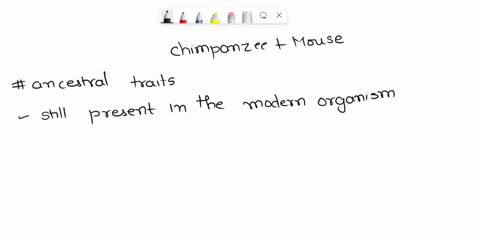 chimpanzee + Mouse
# ancestral traits
- still present in the modern organism